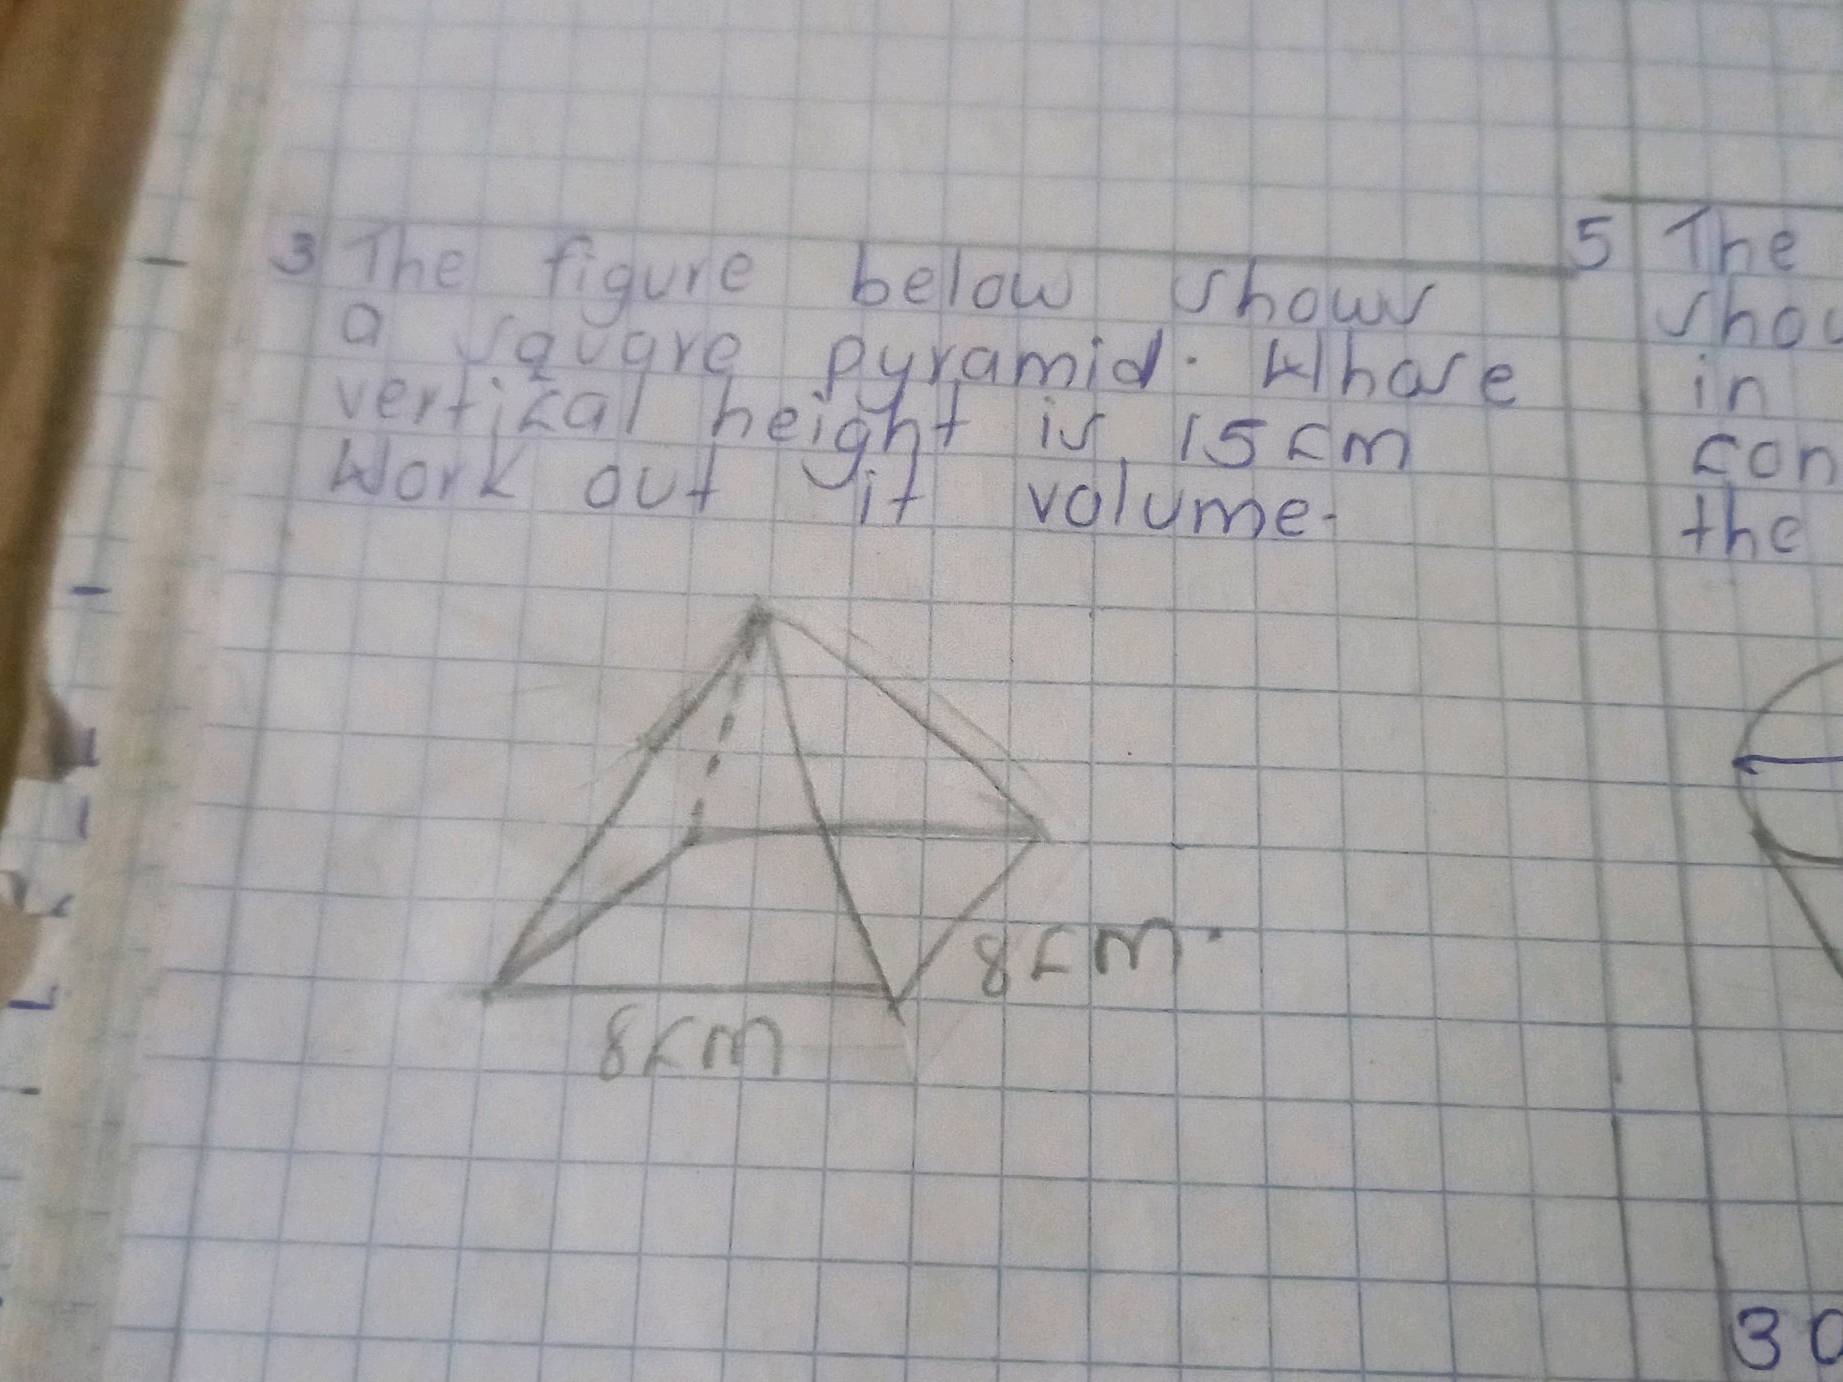 3 The figure below shows
a square pyramid. Whose
vertical height is 15cm
Work out it volume.
8cm.
8cm
5 The
shou
in
con
the
30